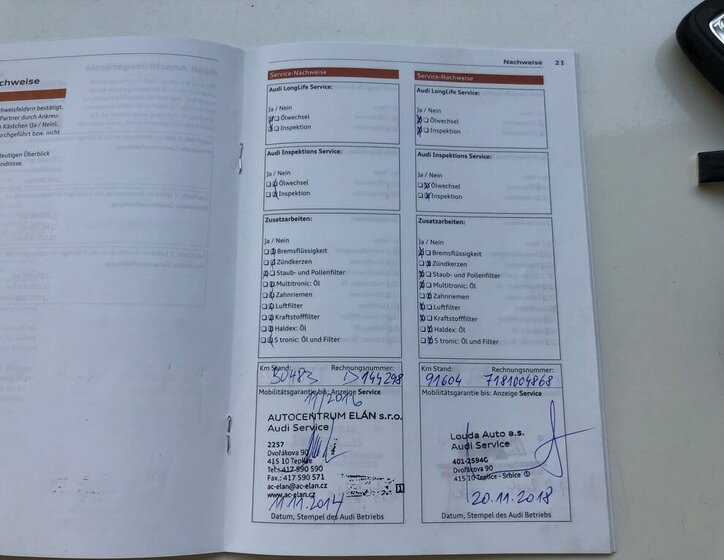 chweise
hweisfeldern bestätigt
Partner durch Ankreu-
n Kästchen (Ja / Nein),
urchgeführt bzw. nicht
deutigen Überblick
ndnisse.
Nachweise 21
Service-Nachweise
Audi LongLife Service:
Ja / Nein
Ölwechsel
Inspektion
Audi Inspektions Service:
Ja / Nein
Ölwechsel
Inspektion
Zusatzarbeiten:
Ja / Nein
Bremsflüssigkeit
Zündkerzen
Staub- und Pollenfilter
Multitronic: Öl
Zahnriemen
Luftfilter
Kraftstofffilter
Haldex: Öl
S tronic: Öl und Filter
Km Stand: Rechnungsnummer:
30483 D144298
Mobilitätsgarantie bis: Anzeige Service
11/2016
AUTOCENTRUM ELÁN s.r.o.
Audi Service
2257
Dvořákova 90
415 10 Teplice
Tel.: 417 590 590
Fax.: 417 590 571
ac-elan@ac-elan.cz
www.ac-elan.cz
11.11.2014
Datum, Stempel des Audi Betriebs
Service-Nachweise
Audi LongLife Service:
Ja / Nein
Ölwechsel
Inspektion
Audi Inspektions Service:
Ja / Nein
Ölwechsel
Inspektion
Zusatzarbeiten:
Ja / Nein
Bremsflüssigkeit
Zündkerzen
Staub- und Pollenfilter
Multitronic: Öl
Zahnriemen
Luftfilter
Kraftstofffilter
Haldex: Öl
S tronic: Öl und Filter
Km Stand: Rechnungsnummer:
91604 7181004868
Mobilitätsgarantie bis: Anzeige Service
Louda Auto a.s.
Audi Service
401-2594G
Dvořákova 90
415 10 Teplice - Srbice
20.11.2018
Datum, Stempel des Audi Betriebs